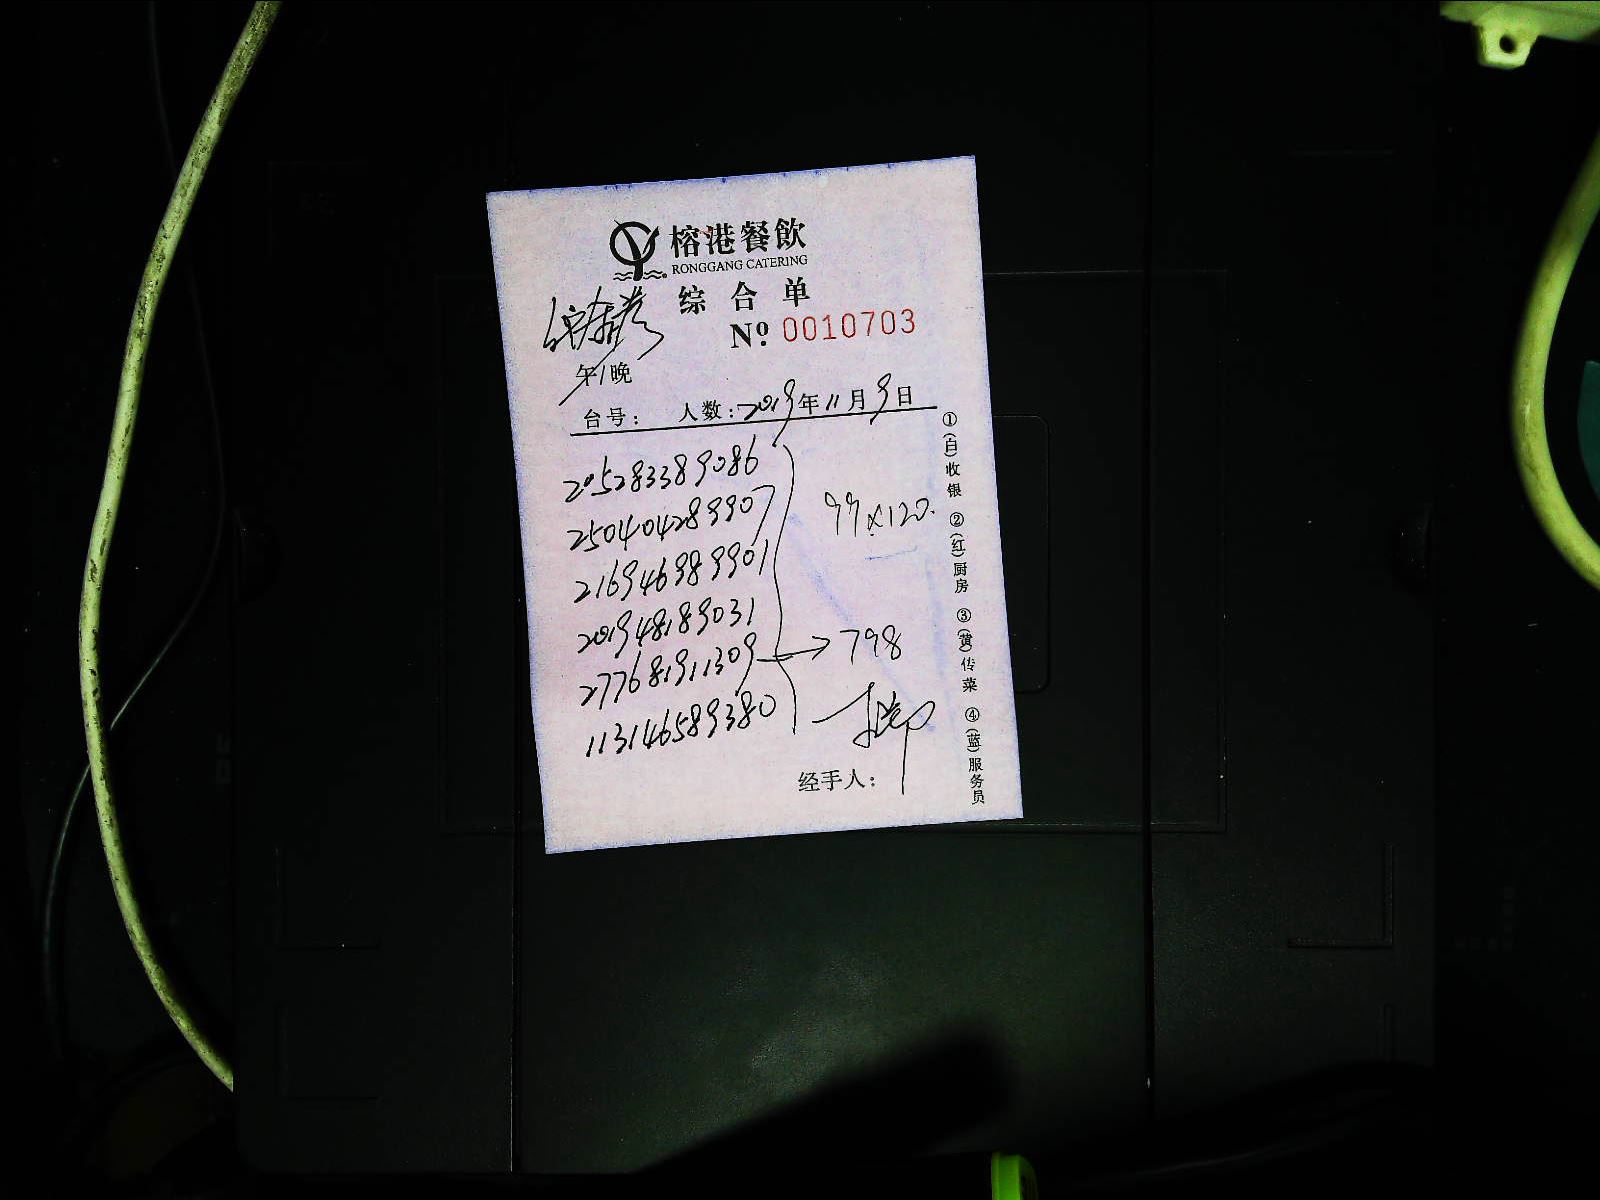 榕港餐飲
RONGGANG CATERING
综合单
Nº 0010703
午/晚
台号: 人数: 2019年11月9日
205283389086
250404289907
216946989901
201948189031
277681911309 → 798
113146589380
99×120.
经手人:
①(白)收银 ②(红)厨房 ③(黄)传菜 ④(蓝)服务员